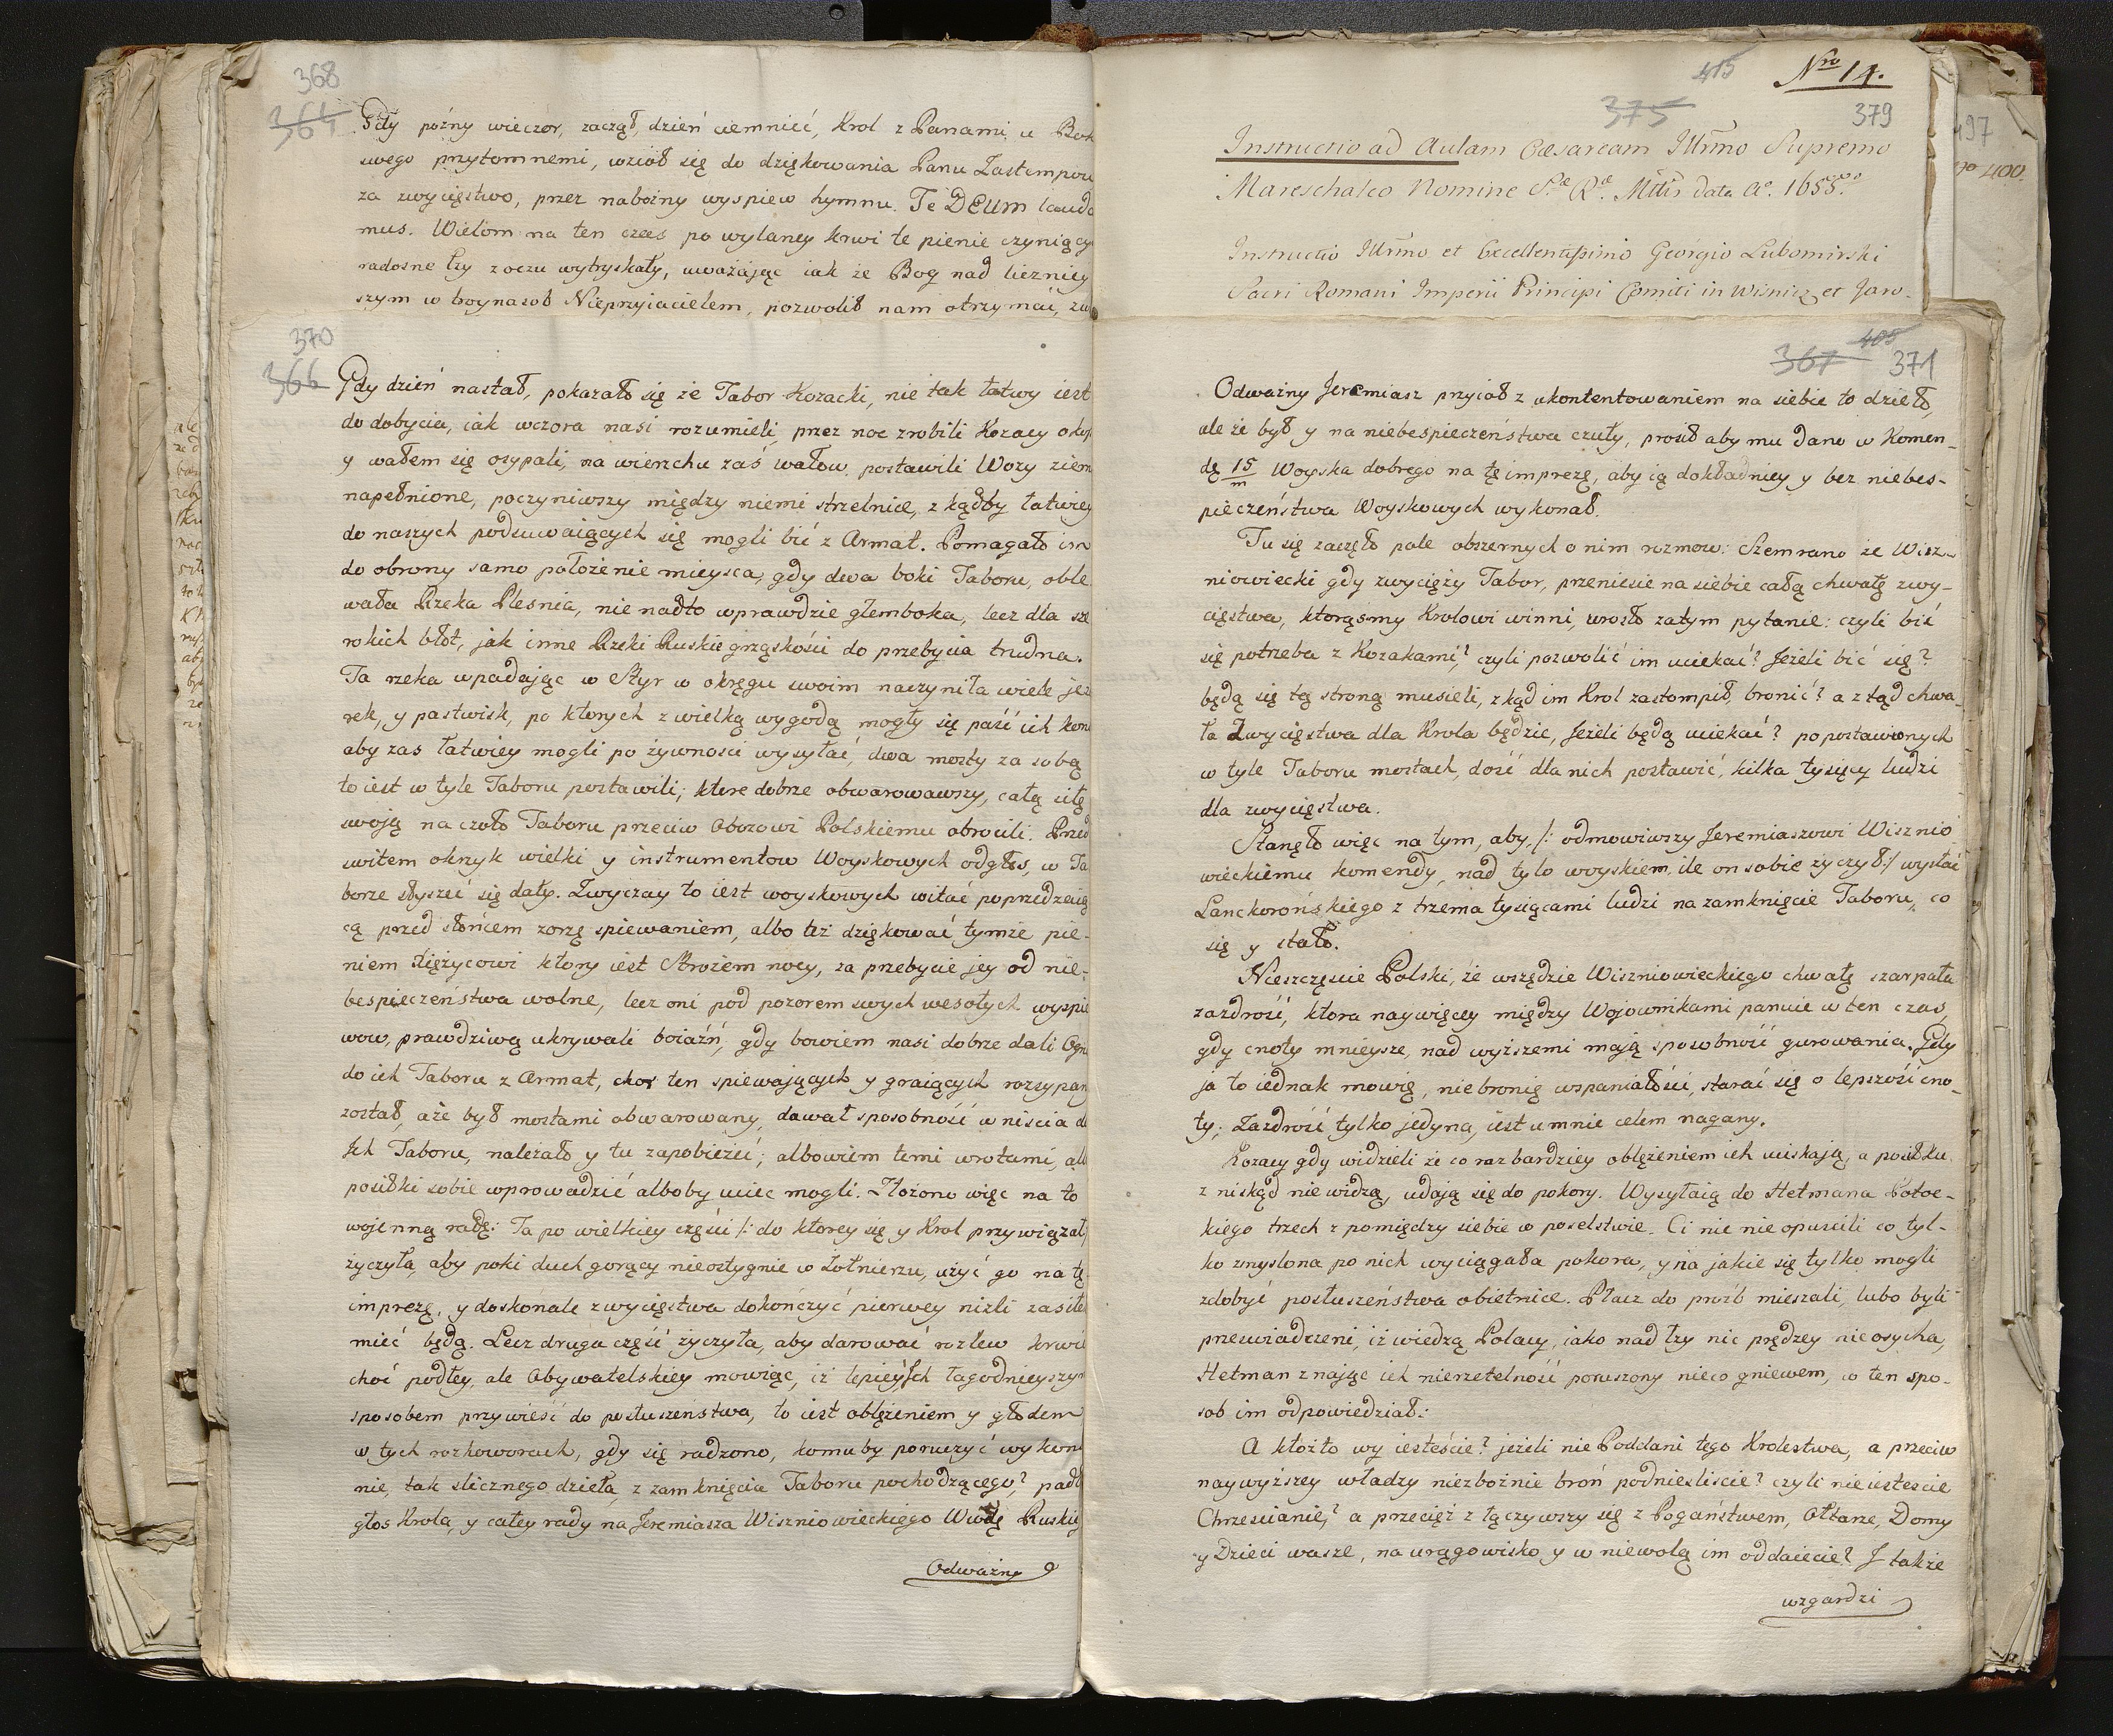 368
364
Gdy poźny wieczor, zaczął dzień ciemnieć, Krol z Panami u Bok
swego przytomnemi, wziół się do dziękowania Panu Zastempow
za zwycięstwo, przez nabożny wyspiew hymnu. Te DEUM lauda
mus. Wielom na ten czas po wylaney krwi te pienie czyniący
radosne łzy z oczu wytryskały, uważając iak że Bog nad liczniey
szym w troynasob Nieprzyiacielem, pozwolił nam otrzymać, zw
370
366
Gdy dzień nastał, pokazało się że Tabor Kozacki, nie tak łatwy iest
do dobycia, iak wczora nasi rozumieli, przez noc zrobili Kozacy okop
y wałem się osypali, na wierzchu zaś wałow, postawili Wozy ziem
napełnione, poczyniwszy między niemi strzelnice, z kądby łatwiey
do naszych podsuwaiących się mogli bić z Armat. Pomagało im
do obrony samo położenie mieysca, gdy dwa boki Taboru, oble
wała Rzeka Plesnia, nie nadto wprawdzie głemboka, lecz dla sze
rokich błot, jak inne Rzeki Ruskie grząskości do przebycia trudna.
Ta rzeka wpadając w Styr w okręgu swoim naczyniła wiele jez
rek, y pastwisk, po ktorych z wielką wygodą mogły się paść ich kon
aby zas łatwiey mogli po żywnosci wysyłać, dwa mosty za sobą
to iest w tyle Taboru postawili; ktore dobrze obwarowawszy, całą siłę
swoją na czoło Taboru przeciw Obozowi Polskiemu obrocili. Przed
switem okrzyk wielki y instrumentow Woyskowych odgłos, w Ta
borze słyszeć się dały. Zwyczay to iest woyskowych witać poprzedzaią
cą przed słońcem zorzę spiewaniem, albo też dziękować tymże pie-
niem Xiężycowi ktory iest Strożem nocy, za przebycie jey od nie-
bespieczeństwa wolne, lecz oni pod pozorem swych wesołych wyspie
wow, prawdziwą ukrywali boiaźń, gdy bowiem nasi dobrze dali Ogn
do ich Taboru z Armat, chor ten spiewających y graiących rozsypan
został, aże był mostami obwarowany, dawał sposobność w niscia d
Ich Taboru, należało y tu zapobieżeć; albowiem temi wrotami, alb
posiłki sobie wprowadzić alboby uciec mogli. Złożono więc na to
wojenną radę: Ta po wielkiey części /: do ktorey się y Krol przywiązał
życzyła, aby poki duch gorący nieostygnie w Żołnierzu, użyć go na tę
imprezę, y doskonale zwycięstwa dokończyć pierwey nizli zasiłek
mieć będą. Lecz druga część życzyła, aby darować rozlew krwi
choć podłey, ale Obywatelskiey mowiąc, iż lepiey Ich łagodnieyszym
sposobem przywieść do posłuszeństwa, to iest oblężeniem y głodem
w tych rozhoworach, gdy się radzono, komuby poruczyć wykona
nie, tak slicznego dzieła, z zamknięcia Taboru pochodzącego? padł
głos Krola, y całey rady na Jeremiasza Wiszniowieckiego Wwdę Ruskie
Odważny
415
Nro 14.
375
379
Instructio ad Aulam Cæsaream Illmo Supremo
Mareschalco Nomine S.æ R.æ Mttis data Ao. 1655.
Instructio Illmo et Excellentissimo Georgio Lubomirski
Sacri Romani Imperii Principi Comiti in Wisnicz et Jaro-
405
367
371
Odważny Jeremiasz przyioł z ukontentowaniem na siebie to dzieło,
ale że był y na niebespieczeństwa czuły, prosił aby mu dano w Komen-
dę 15/m Woyska dobrego na tę imprezę, aby ią dokładniey y bez niebes-
pieczeństwa Woyskowych wykonał.
Tu się zaczęło pole obszernych o nim rozmow: Szemrano że Wisz-
niowiecki gdy zwycięży Tabor, przeniesie na siebie całą chwałę zwy-
cięstwa, ktorąsmy Krolowi winni, urosło zatym pytanie: czyli bić
się potrzeba z Kozakami? czyli pozwolić im uciekać? Jeżeli bić się?
będą się tą stroną musieli, z kąd im Krol zastompił, bronić? a ztąd chwa-
ła Zwycięstwa dla Krola będzie, Jeżeli będą uciekać? po postawionych
w tyle Taboru mostach, dość dla nich postawić, kilka tysięcy ludzi
dla zwycięstwa.
Stanęło więc na tym, aby, /: odmowiwszy Jeremiaszowi Wisznio
wieckiemu komendy, nad tylo woyskiem, ile on sobie życzył :/ wysłać
Lanckorońskiego z trzema tysiącami ludzi na zamknięcie Taboru, co
się y stało.
Nieszczęscie Polski, że wszędzie Wiszniowieckiego chwałę szarpała
zazdrość, ktora naywięcey między Wojownikami panuie w ten czas,
gdy cnoty mnieysze, nad wyższemi mają sposobność gurowania. Gdy
ja to iednak mowię, niebronię wspaniałości, starać się o lepszość cno-
ty; Zazdrość tylko jedyna, iest u mnie celem nagany.
Kozacy gdy widzieli że co raz bardziey oblężeniem ich uciskają, a posiłku
z niskąd nie widzą, udają się do pokory. Wysyłaią do Hetmana Potoc-
kiego trzech z pomiędzy siebie w poselstwie. Ci nic nie opuscili co tyl-
ko zmyslona po nich wyciągała pokora, y na jakie się tylko mogli
zdobyć posłuszeństwa obietnice. Płacz do prośb mieszali, lubo byli
przeswiadczeni, iż wiedzą Polacy, iako nad łzy nic prędzey nie osycha,
Hetman znając ich nierzetelność poruszony nieco gniewem, w ten spo-
sob im odpowiedział:
A ktożto wy iesteście? jeżeli nie Poddani tego Krolestwa, a przeciw
naywyższey władzy niezbożnie broń podniesliscie? czyli nie iestescie
Chrzescianie? a przecięż z łączywszy się z Pogaństwem, Ołtarze, Domy
y Dzieci wasze, na urągowisko y w niewolą im oddaiecie? I także
wzgardzi
400.